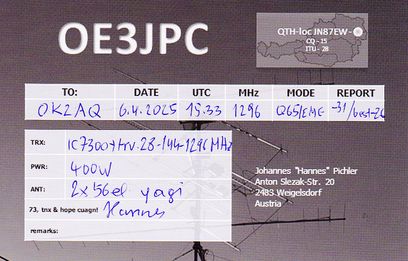 OE3JPC
QTH-loc JN87EW
CQ - 15
ITU - 28
TO: DATE UTC MHz MODE REPORT
OK2AQ 6.4.2025 15.33 1296 Q65/EME -31/best-26
TRX: IC7300+trv. 28-144 1296 MHz
PWR: 400W
ANT: 2x56el yagi
73, tnx & hope cuagn! Hannes
remarks:
Johannes "Hannes" Pichler
Anton Slezak-Str. 20
2483 Weigelsdorf
Austria